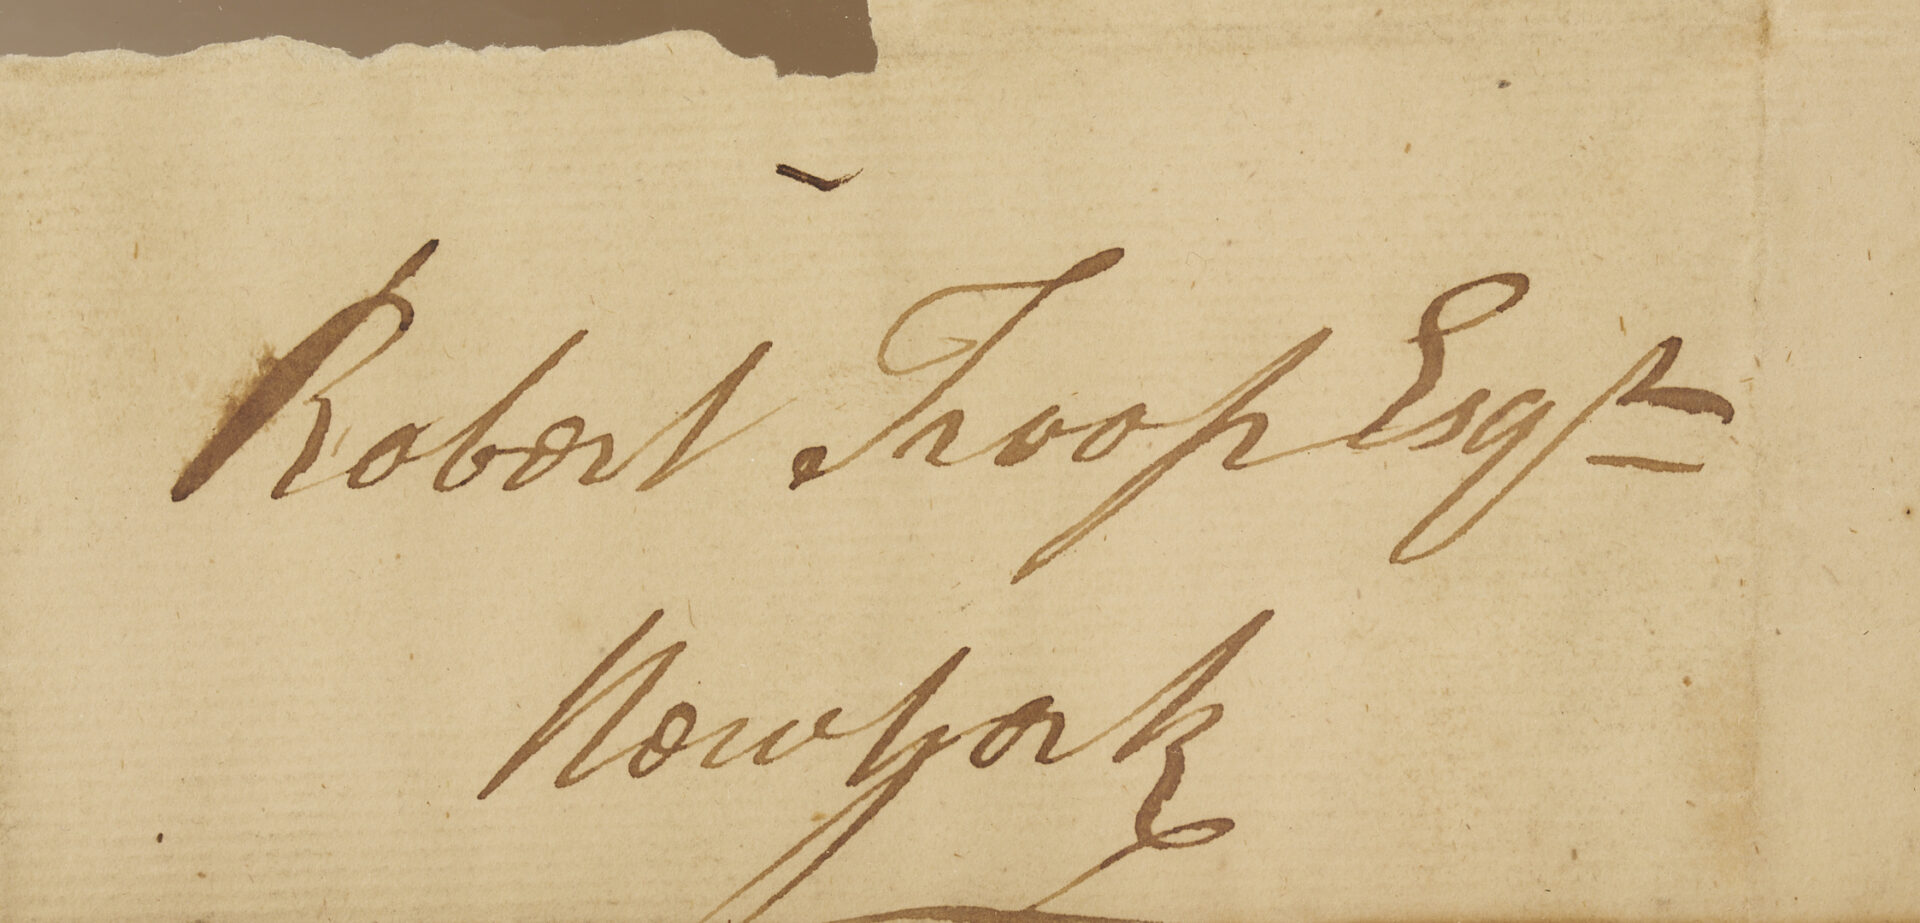 Robert Troop Esqr
Newyork